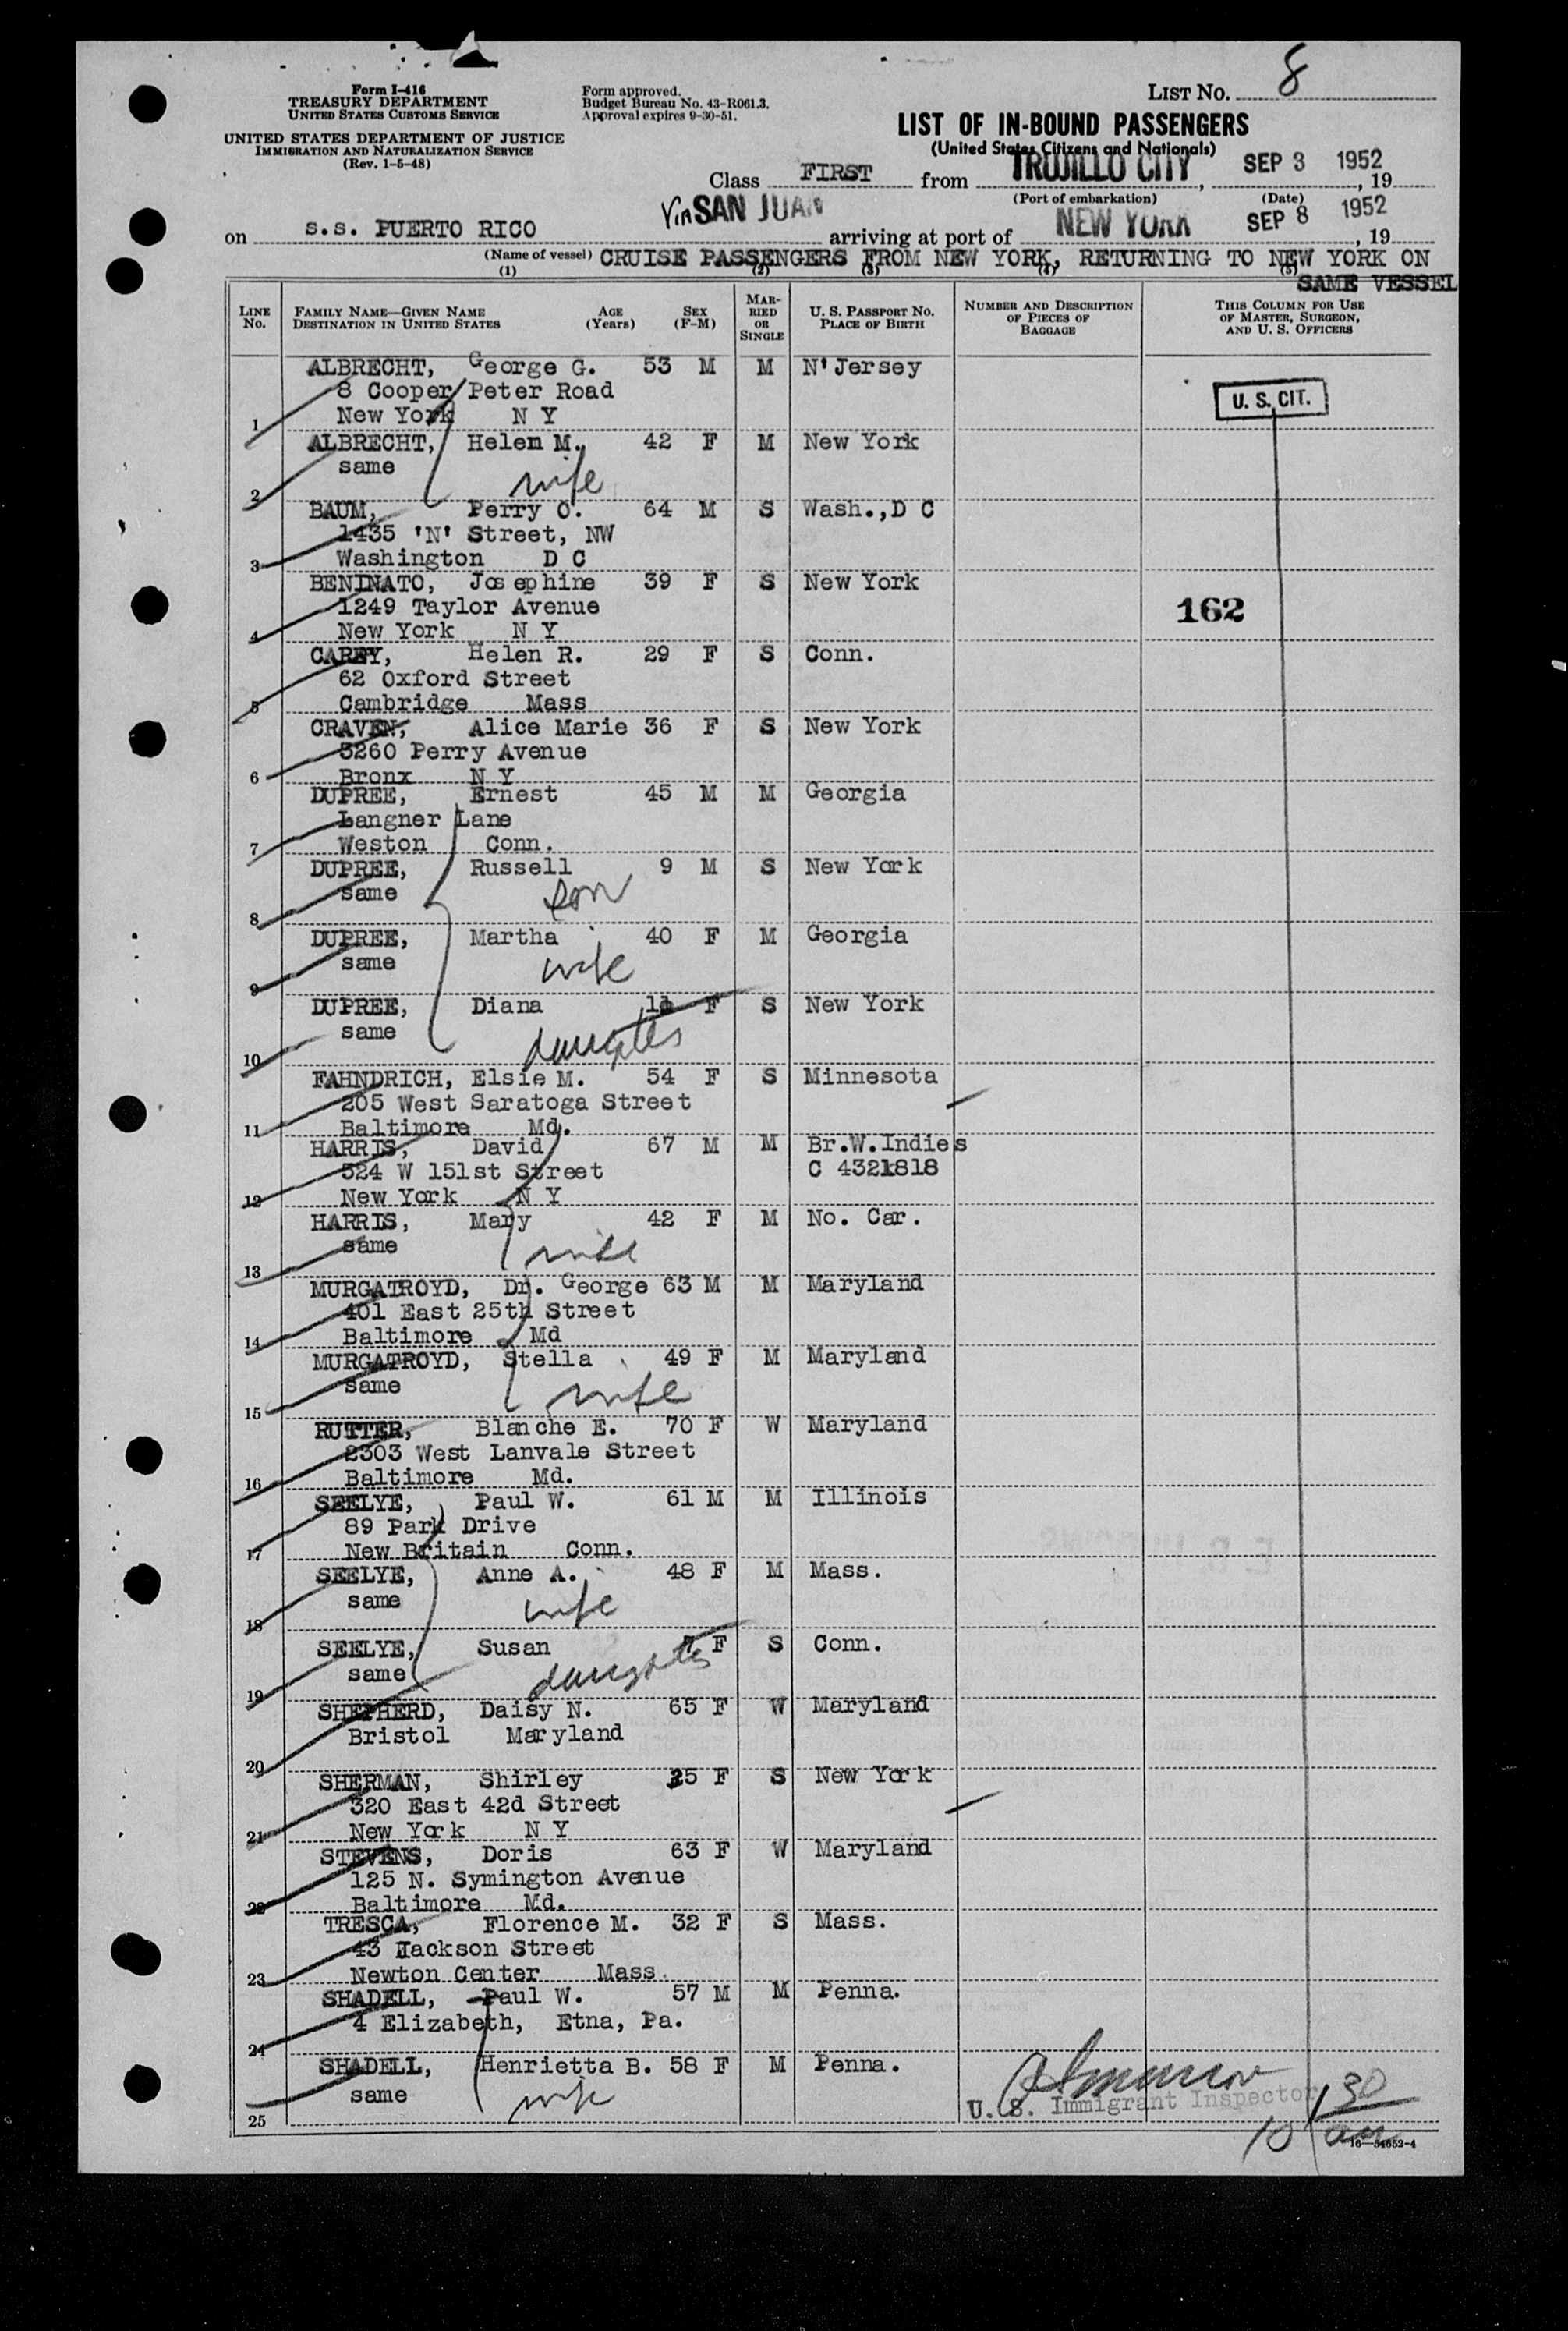 List No. 8
Form I-416
TREASURY DEPARTMENT
UNITED STATES CUSTOMS SERVICE
UNITED STATES DEPARTMENT OF JUSTICE
IMMIGRATION AND NATURALIZATION SERVICE
(Rev. 1-5-48)
Form approved.
Budget Bureau No. 43-R061.3.
Approval expires 9-30-51.
LIST OF IN-BOUND PASSENGERS
(United States Citizens and Nationals)
Class FIRST from TRUJILLO CITY, SEP 3 1952, 19
(Port of embarkation) (Date)
on s.s. PUERTO RICO Via SAN JUAN arriving at port of NEW YORK SEP 8 1952, 19
(Name of vessel) CRUISE PASSENGERS FROM NEW YORK, RETURNING TO NEW YORK ON
SAME VESSEL
(1) (2) (3) (4) (5)
LINE No. FAMILY NAME—GIVEN NAME DESTINATION IN UNITED STATES AGE (Years) SEX (F-M) MARRIED OR SINGLE U. S. PASSPORT NO. PLACE OF BIRTH NUMBER AND DESCRIPTION OF PIECES OF BAGGAGE THIS COLUMN FOR USE OF MASTER, SURGEON, AND U. S. OFFICERS
ALBRECHT, George G. 53 M M N'Jersey
8 Cooper Peter Road
U. S. CIT.
1 New York N Y
ALBRECHT, Helen M. 42 F M New York
same
2 wife
BAUM, Perry O. 64 M S Wash.,D C
1435 'N' Street, NW
3 Washington D C
BENINATO, Josephine 39 F S New York
1249 Taylor Avenue
162
4 New York N Y
CAREY, Helen R. 29 F S Conn.
62 Oxford Street
5 Cambridge Mass
CRAVEN, Alice Marie 36 F S New York
3260 Perry Avenue
6 Bronx N Y
DUPREE, Ernest 45 M M Georgia
Langner Lane
7 Weston Conn.
DUPREE, Russell 9 M S New York
same son
8
DUPREE, Martha 40 F M Georgia
same wife
9
DUPREE, Diana F S New York
same daughter
10
FAHNDRICH, Elsie M. 54 F S Minnesota
205 West Saratoga Street
11 Baltimore Md.
HARRIS, David 67 M M Br.W.Indies
524 W 151st Street C 4321818
12 New York N Y
HARRIS, Mary 42 F M No. Car.
same wife
13
MURGATROYD, Dr. George 63 M M Maryland
401 East 25th Street
14 Baltimore Md
MURGATROYD, Stella 49 F M Maryland
same wife
15
RUTTER, Blanche E. 70 F W Maryland
2303 West Lanvale Street
16 Baltimore Md.
SEELYE, Paul W. 61 M M Illinois
89 Park Drive
17 New Britain Conn.
SEELYE, Anne A. 48 F M Mass.
same wife
18
SEELYE, Susan 7 F S Conn.
same daughter
19
SHEPHERD, Daisy N. 65 F W Maryland
Bristol Maryland
20
SHERMAN, Shirley 25 F S New York
320 East 42d Street
21 New York N Y
STEVENS, Doris 63 F W Maryland
125 N. Symington Avenue
22 Baltimore Md.
TRESCA, Florence M. 32 F S Mass.
43 Jackson Street
23 Newton Center Mass.
SHADELL, Paul W. 57 M M Penna.
4 Elizabeth, Etna, Pa.
24
SHADELL, Henrietta B. 58 F M Penna.
same wife
U. S. Immigrant Inspector
25
10 30 am
16—54652-4